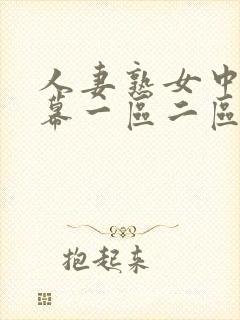 人妻熟女中
幕一區二區
抱起来